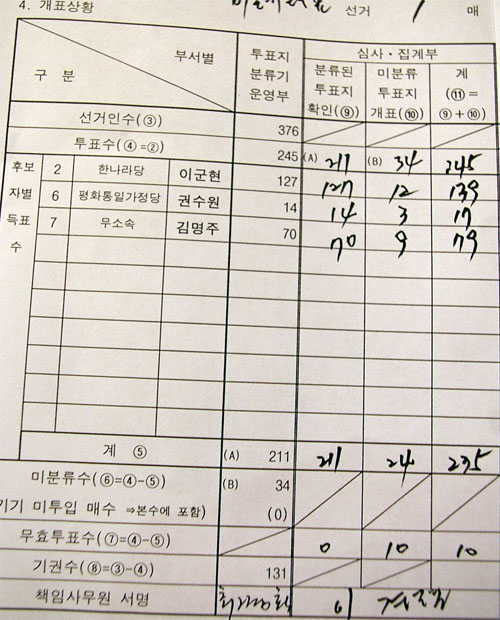 4. 개표상황 선거 1 매
부서별 구 분 투표지 분류기 운영부 심사·집계부
분류된 투표지 확인(⑨) 미분류 투표지 개표(⑩) 계 (⑪= ⑨+⑩)
선거인수(③) 376
투표수(④=②) 245 (A) 211 (B) 34 245
후보 2 한나라당 이군현 127 127 12 139
자별 6 평화통일가정당 권수원 14 14 3 17
득표 7 무소속 김명주 70 70 9 79
수
계 ⑤ (A) 211 211 24 235
미분류수(⑥=④-⑤) (B) 34
기기 미투입 매수 ⇒본수에 포함) (0)
무효투표수(⑦=④-⑤) 0 10 10
기권수(⑧=③-④) 131
책임사무원 서명